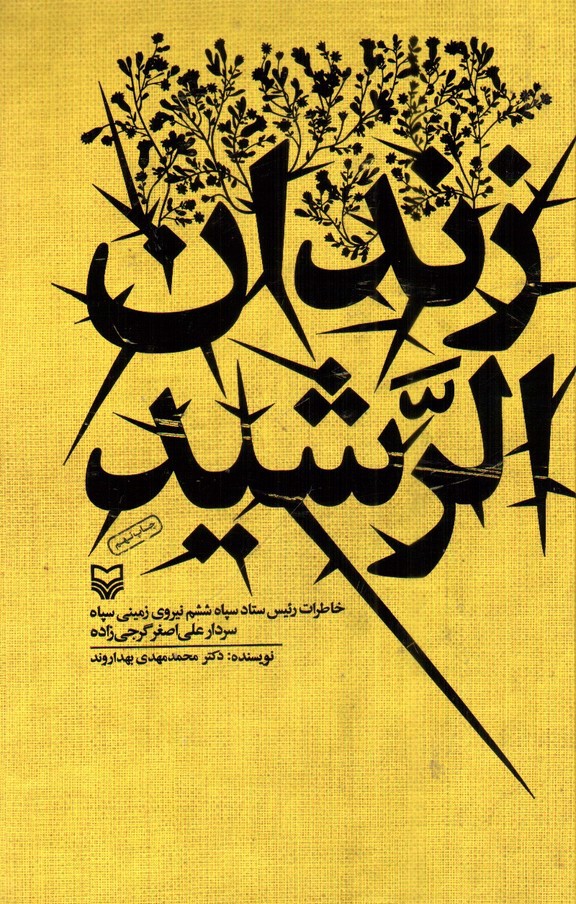 زندان
الرَّشید
چاپ نهم
خاطرات رئیس ستاد سپاه ششم نیروی زمینی سپاه
سردار علی‌اصغر گرجی‌زاده
نویسنده: دکتر محمدمهدی بهداروند